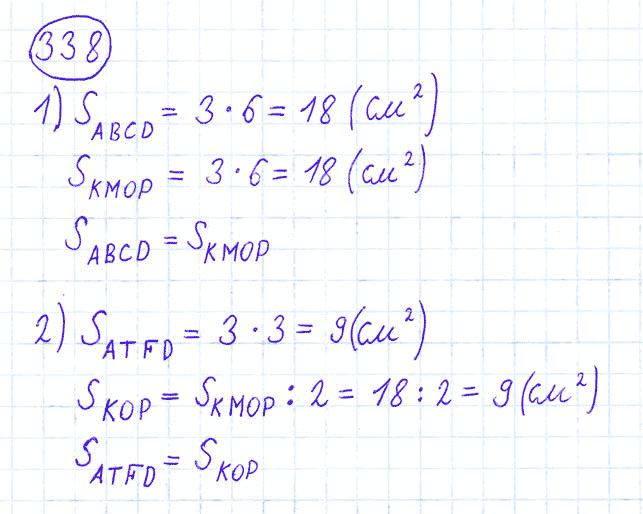 338
1) S_ABCD = 3 · 6 = 18 (см²)
S_KMOP = 3 · 6 = 18 (см²)
S_ABCD = S_KMOP
2) S_ATFD = 3 · 3 = 9 (см²)
S_KOP = S_KMOP : 2 = 18 : 2 = 9 (см²)
S_ATFD = S_KOP